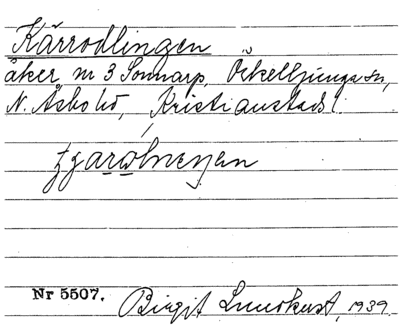 Kärrodlingen
åker nr 3 Sonnarp, Örkelljunga sn,
N. Åsbo hd, Kristianstads l.
Nr 5507. Birgit Lundkvist, 1939.